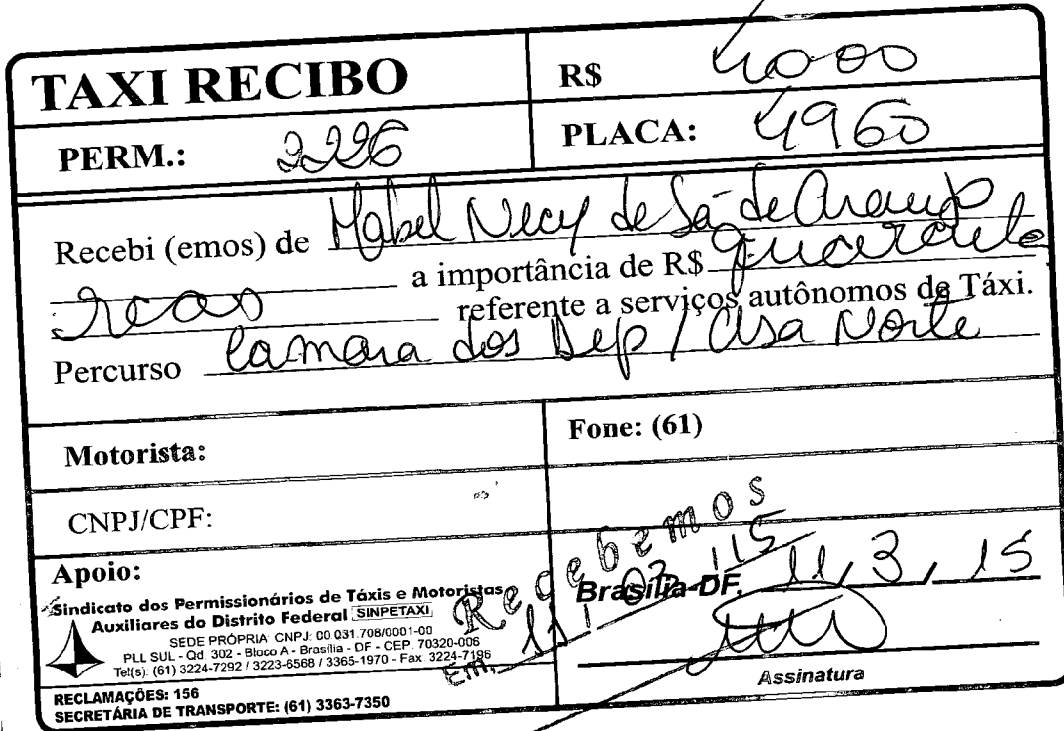 TAXI RECIBO
R$ 4000
PERM.: 2226
PLACA: 4960
Recebi (emos) de Mabel Necy de Sá de Araujo
a importância de R$ quarenta
reais referente a serviços autônomos de Táxi.
Percurso Camara dos Dep / Asa Norte
Motorista:
Fone: (61)
CNPJ/CPF:
Recebemos
Em, 11, 03, 15
Apoio:
Sindicato dos Permissionários de Táxis e Motoristas
Auxiliares do Distrito Federal SINPETAXI
SEDE PRÓPRIA CNPJ: 00.031.708/0001-00
PLL SUL - Qd. 302 - Bloco A - Brasília - DF - CEP. 70320-006
Tel(s): (61) 3224-7292 / 3223-6568 / 3365-1970 - Fax. 3224-7196
Brasília-DF, 11, 3, 15
Assinatura
RECLAMAÇÕES: 156
SECRETÁRIA DE TRANSPORTE: (61) 3363-7350